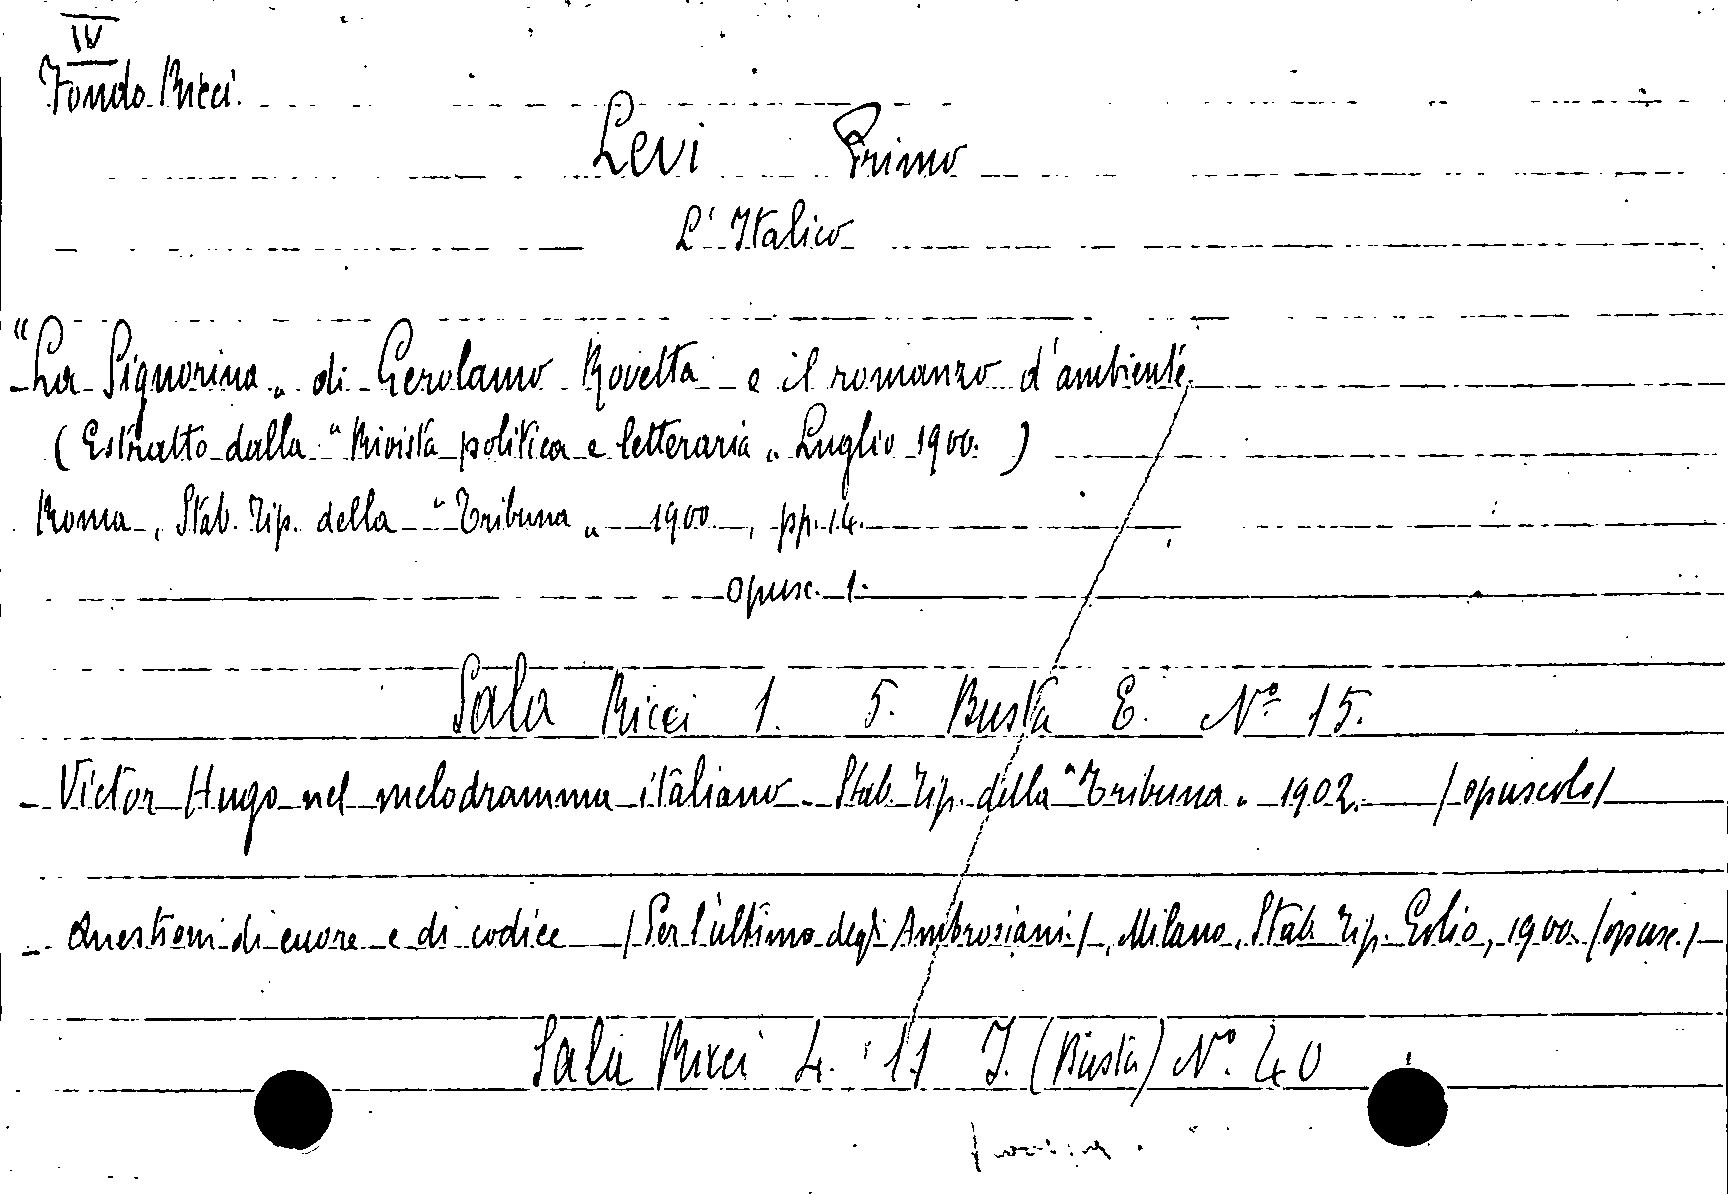 IV
Fondo Ricci.
Levi Primo
L'Italico
"La Signorina" di Gerolamo Rovetta e il romanzo d'ambiente.
(Estratto dalla "Rivista politica e letteraria" Luglio 1900.)
Roma, Stab. Tip. della "Tribuna" 1900, pp. 14.
opusc. 1.
Sala Ricci 1. 5. Busta E. N° 15.
- Victor Hugo nel melodramma italiano. Stab. Tip. della "Tribuna" 1902. /opuscolo/
- Questioni di cuore e di codice /Per l'ultimo degli Ambrosiani/, Milano, Stab. Tip. Golio, 1900. /opusc./
Sala Ricci 4. 11 I. (Busta) N° 40